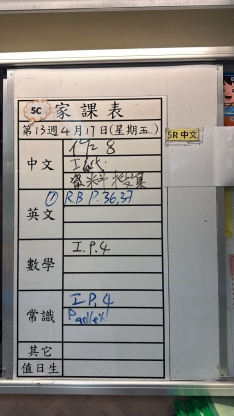 5C 家課表
第13週4月17日(星期五)
5R 中文
中文
8
資料搜集
英文
① RB P.36,37
數學
I.P.4
常識
I.P.4
Padlet
其它
值日生